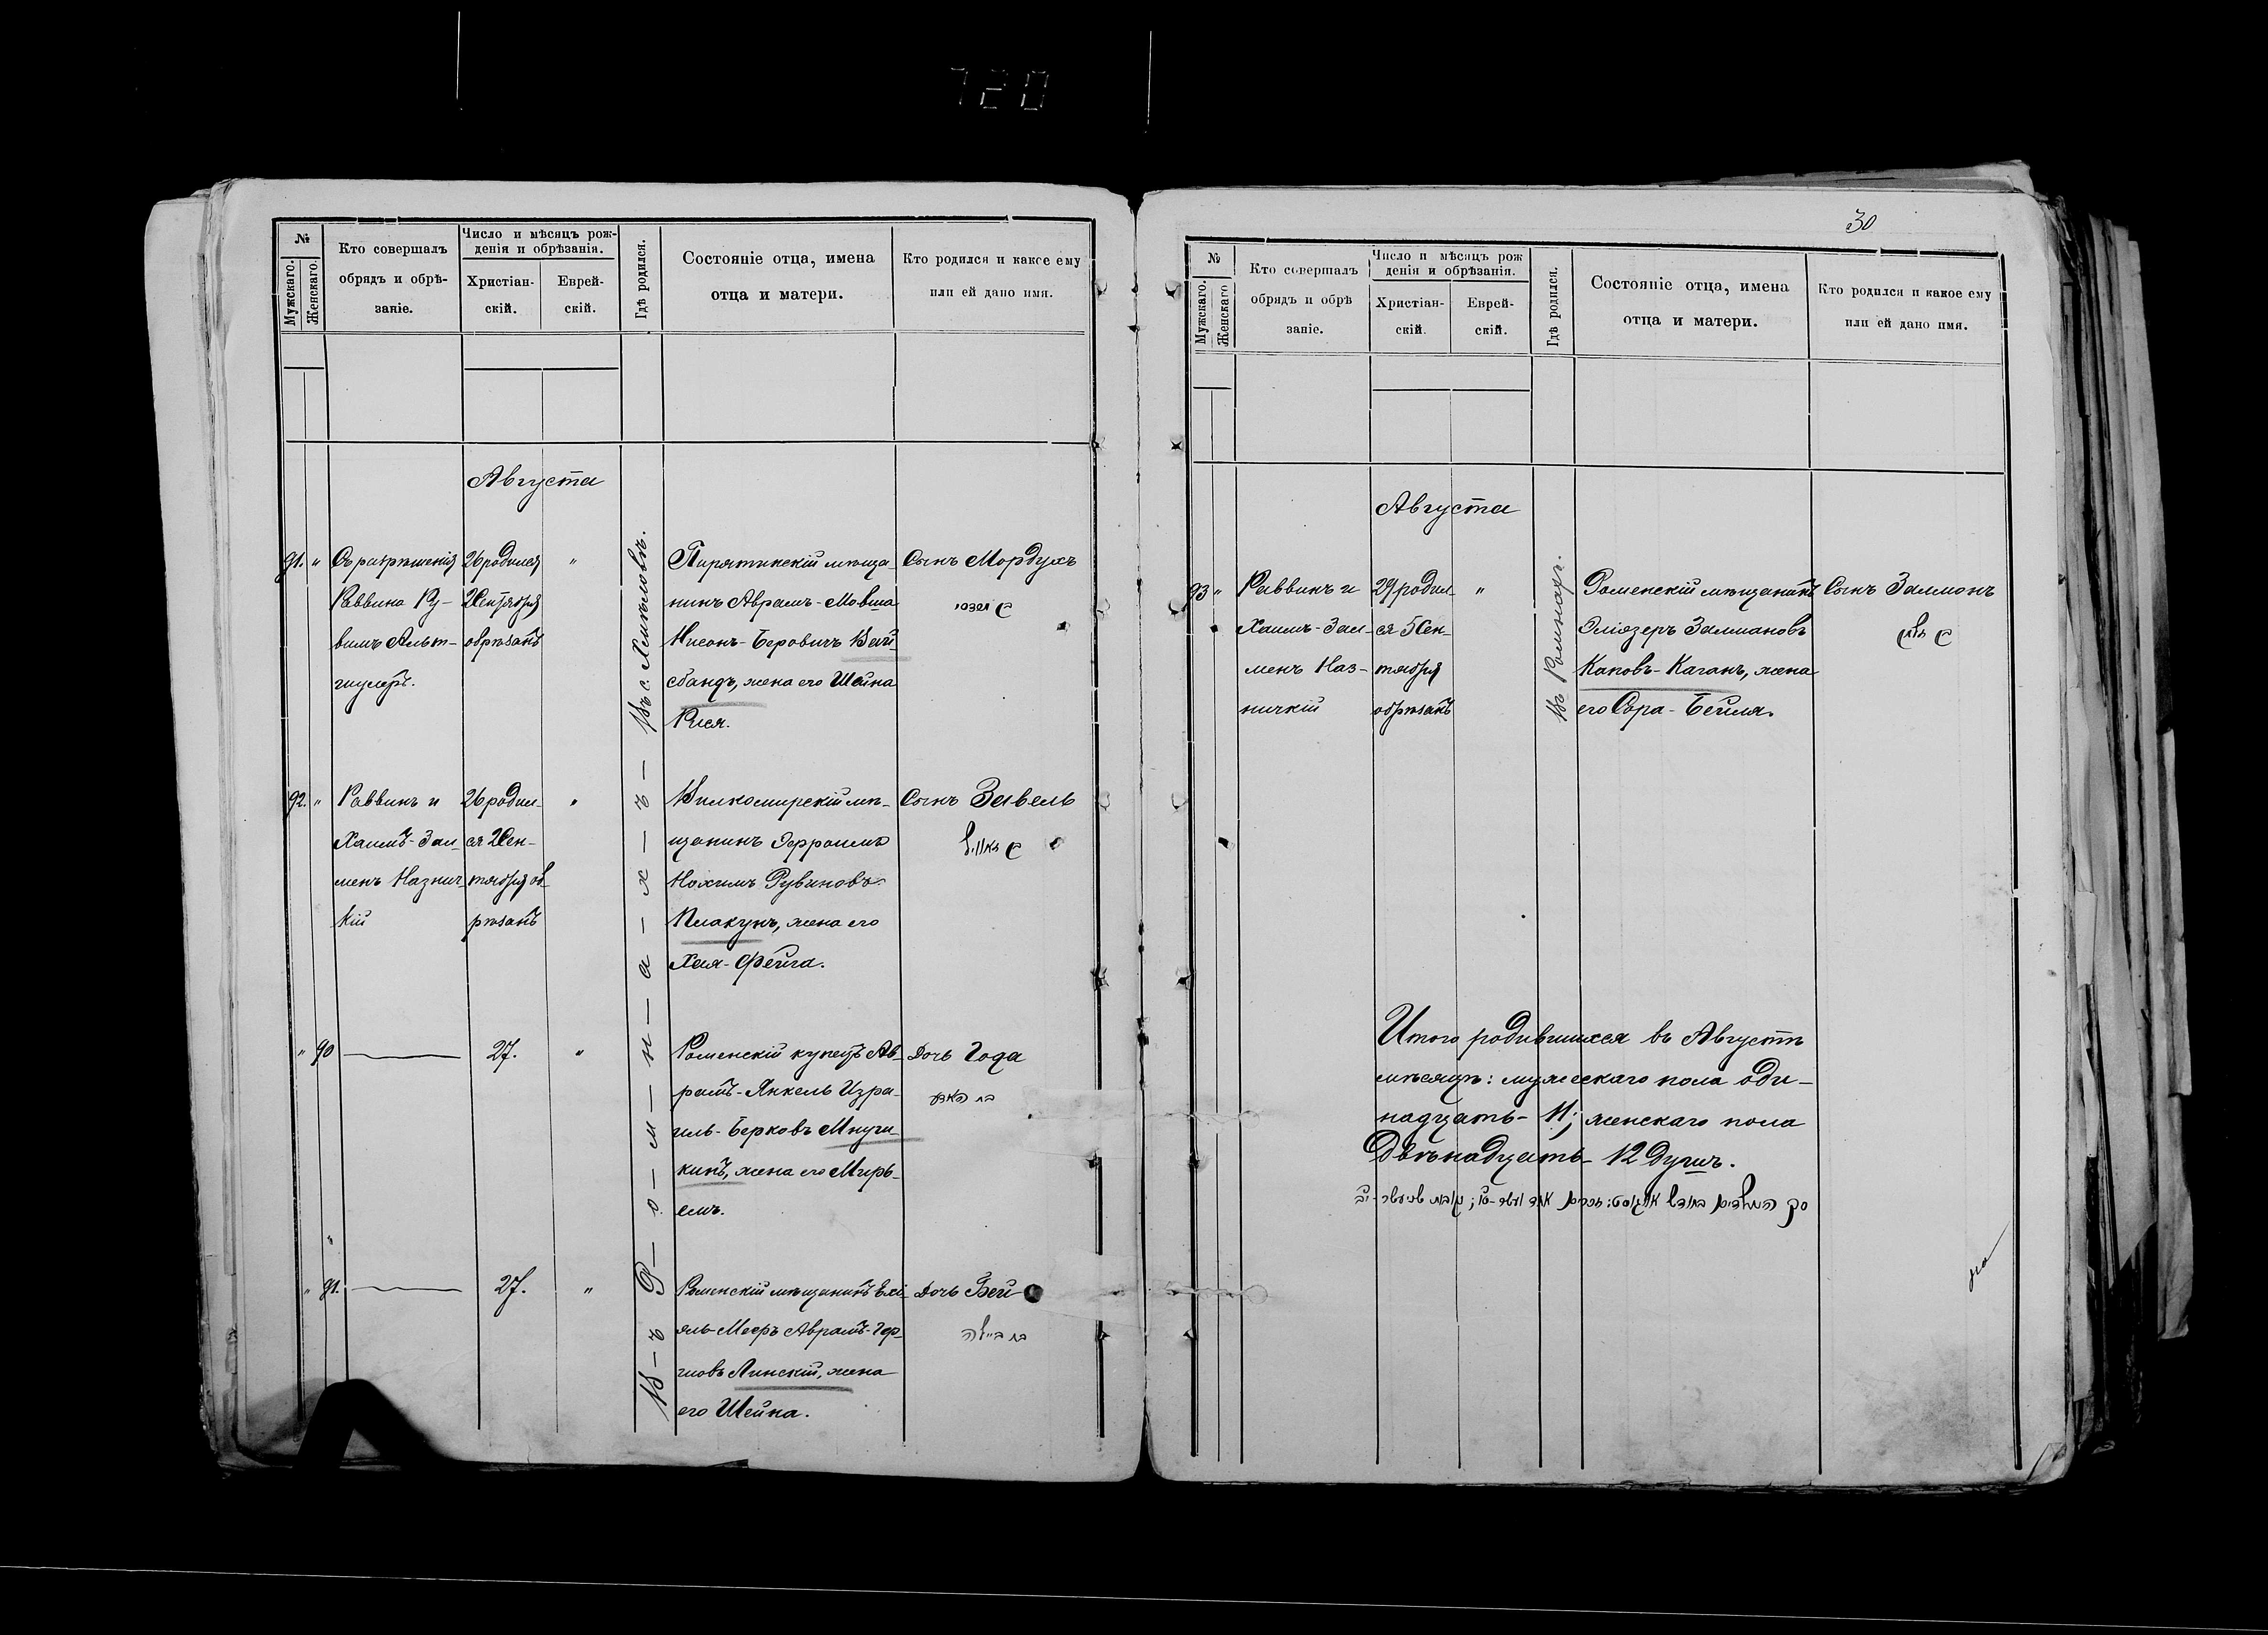 720
№
Мужскаго.
Женскаго.
Кто совершалъ
обрядъ и обрѣ-
заніе.
Число и мѣсяцъ рож-
денія и обрѣзанія.
Христіан-
скій.
Еврей-
скій.
Гдѣ родился.
Состояніе отца, имена
отца и матери.
Кто родился и какое ему
или ей дано имя.
Августа
91. "
Съ разрѣшенія
Раввина Ру-
вимъ Альт-
26 родился
2 Сентября
обрѣзанъ
"
Пирятинскій мѣща-
нинъ Аврамъ-Мовша
Нисонъ-Беровичъ Вай-
сбандъ, жена его Шейна
Рися.
Сынъ Мордухъ
92. "
Раввинъ и
Хаимъ-Зал-
менъ Назнич-
кій
26 родил-
ся 2 Сен-
тября об-
рѣзанъ
"
Вилкомирскій мѣ-
щанинъ Эфроимъ
Нохимъ Рувиновъ
Плакунъ, жена его
Хая-Фейга.
Сынъ Завель
" 90
27.
"
Роменскій купецъ Ав-
рамъ-Янкель Изра-
иль-Берковъ Мнучи-
кинъ, жена его Мирь-
емъ.
Дочь Года
"
" 91.
27.
"
Роменскій мѣщанинъ Ехі-
ель-Мееръ Аврамъ-Гер-
шовъ Линскій, жена
его Шейна.
Дочь Бей
בת ביילה
В—ъ Р—о—м—н—а—х—ъ—
30
№
Мужскаго.
Женскаго
Кто совершалъ
обрядъ и обрѣ
заніе.
Число и мѣсяцъ рож
денія и обрѣзанія.
Христіан-
скій.
Еврей-
скій.
Гдѣ родился.
Состояніе отца, имена
отца и матери.
Кто родился и какое ему
или ей дано имя.
Августа
93 "
Раввинъ и
Хаимъ-Зал-
менъ Наз-
ничкій
29 родил-
ся 5 Сен-
тября
обрѣзанъ
"
Въ Ромнахъ.
Роменскій мѣщанинъ
Эліязеръ Залмановъ
Каповъ-Каганъ, жена
его Сора-Бейля.
Сынъ Залмонъ
Итого родившихся въ Августѣ
мѣсяцѣ: мужескаго пола оди-
надцать- 11; женскаго пола
Двѣнадцать- 12 Душъ.